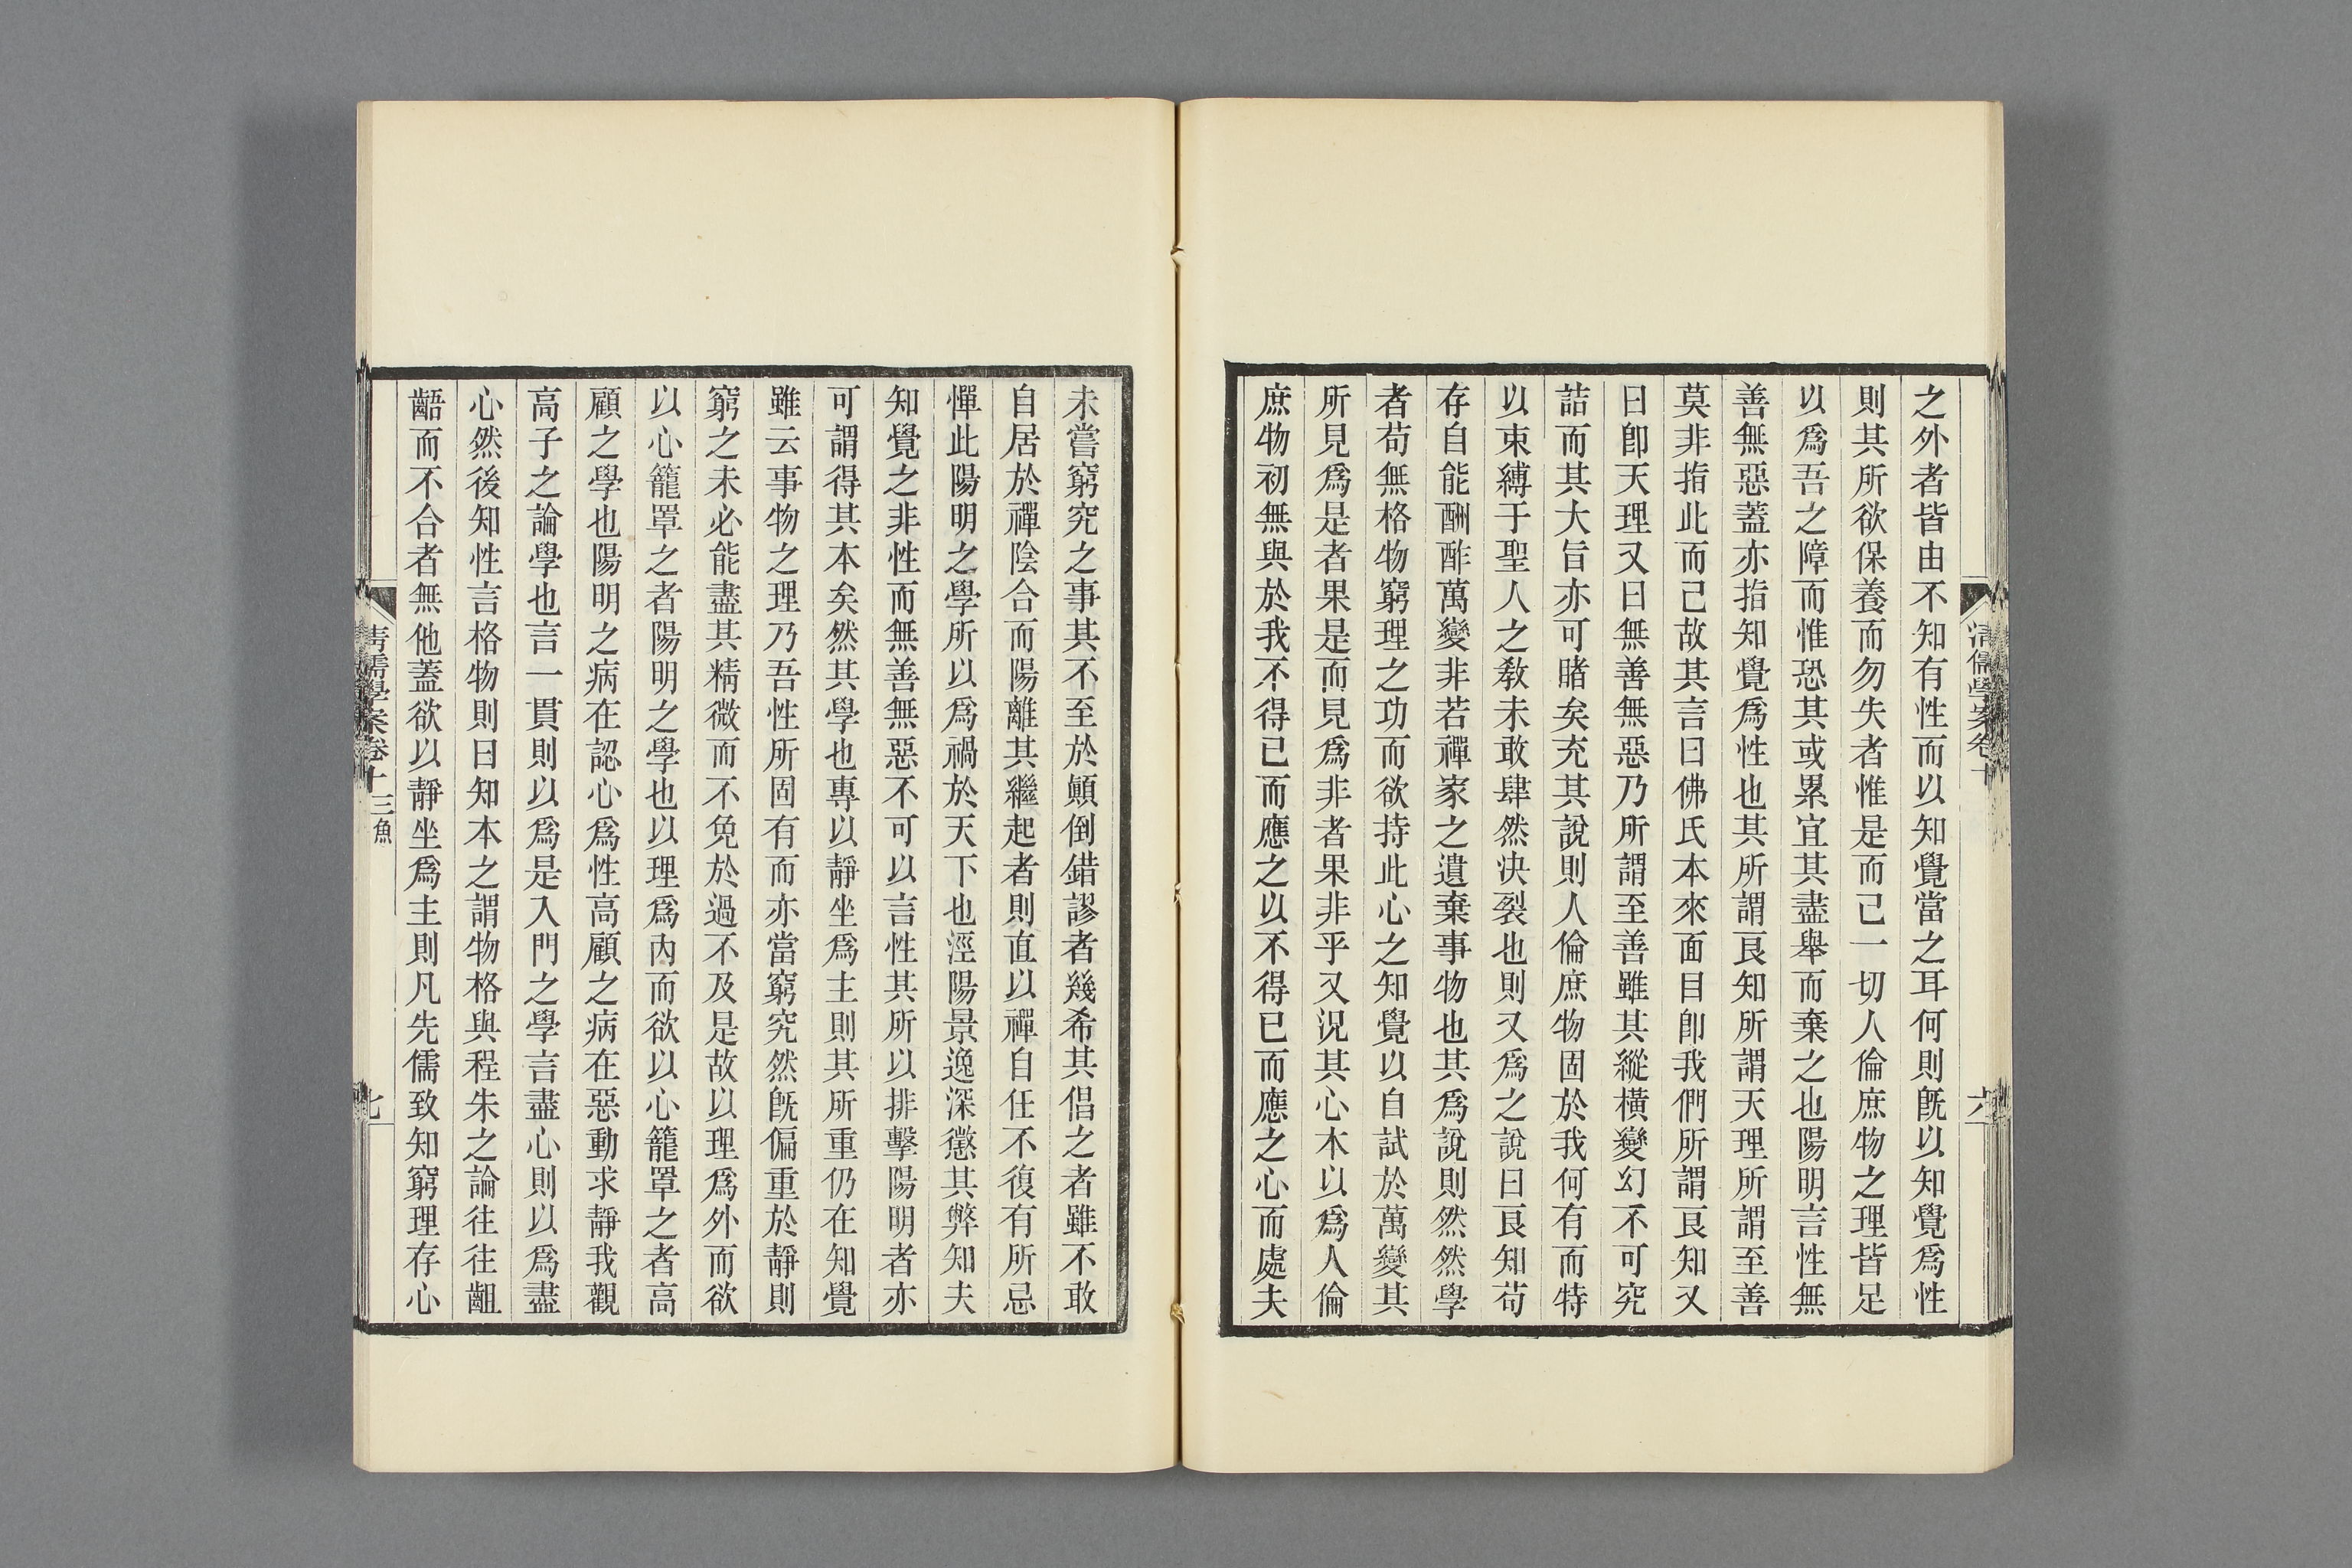 清儒學案卷十
六
之外者皆由不知有性而以知覺當之耳何則旣以知覺爲性
則其所欲保養而勿失者惟是而已一切人倫庶物之理皆足
以爲吾之障而惟恐其或累宜其盡舉而棄之也陽明言性無
善無惡蓋亦指知覺爲性也其所謂良知所謂天理所謂至善
莫非指此而已故其言曰佛氏本來面目卽我們所謂良知又
曰卽天理又曰無善無惡乃所謂至善雖其縱橫變幻不可究
詰而其大旨亦可睹矣充其說則人倫庶物固於我何有而特
以束縛于聖人之敎未敢肆然決裂也則又爲之說曰良知苟
存自能酬酢萬變非若禪家之遺棄事物也其爲說則然然學
者苟無格物窮理之功而欲持此心之知覺以自試於萬變其
所見爲是者果是而見爲非者果非乎又況其心木以爲人倫
庶物初無與於我不得已而應之以不得已而應之心而處夫
未嘗窮究之事其不至於顚倒錯謬者幾希其倡之者雖不敢
自居於禪陰合而陽離其繼起者則直以禪自任不復有所忌
憚此陽明之學所以爲禍於天下也涇陽景逸深懲其弊知夫
知覺之非性而無善無惡不可以言性其所以排擊陽明者亦
可謂得其本矣然其學也專以靜坐爲主則其所重仍在知覺
雖云事物之理乃吾性所固有而亦當窮究然旣偏重於靜則
窮之未必能盡其精微而不免於過不及是故以理爲外而欲
以心籠罩之者陽明之學也以理爲內而欲以心籠罩之者高
顧之學也陽明之病在認心爲性高顧之病在惡動求靜我觀
高子之論學也言一貫則以爲是入門之學言盡心則以爲盡
心然後知性言格物則曰知本之謂物格與程朱之論往往齟
齬而不合者無他蓋欲以靜坐爲主則凡先儒致知窮理存心
清儒學案卷十三魚
七